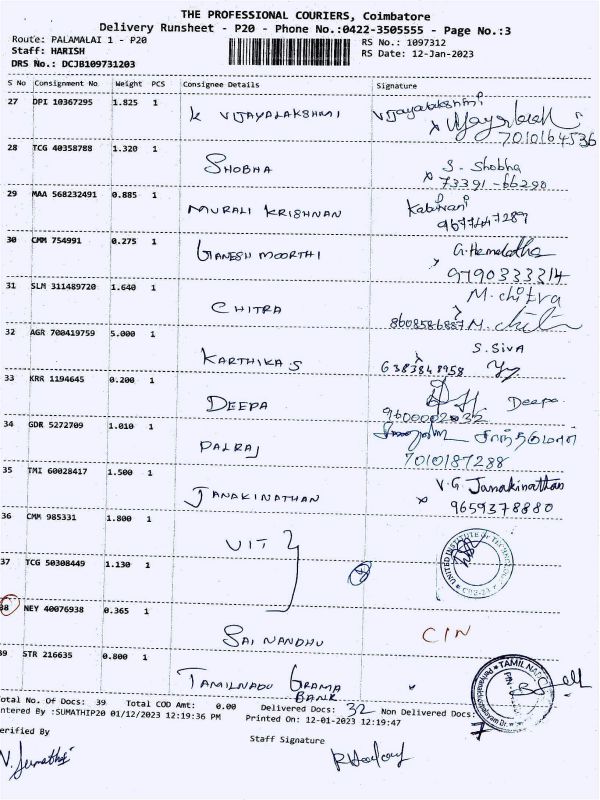 THE PROFESSIONAL COURIERS, Coimbatore
Delivery Runsheet - P20 - Phone No.:0422-3505555 - Page No.:3
Route: PALAMALAI 1 - P20
RS No.: 1097312
Staff: HARISH
RS Date: 12-Jan-2023
DRS No.: DCJB109731203
S No Consignment No. Weight PCS Consignee Details Signature
27 DPI 10367295 1.825 1 K VIJAYALAKSHMI Vijayalakshmi
7010164536
28 TCG 40358788 1.320 1 SHOBHA S. Shobha
x 73391-66290
29 MAA 568232491 0.885 1 MURALI KRISHNAN
9677447289
30 CMM 754991 0.275 1 GANESH MOORTHI G. Hemalatha
9790333214
31 SLM 311489720 1.640 1 CHITRA M. chitra
8608586887 M. chit
32 AGR 700419759 5.000 1 KARTHIKA S S. Siva
6383848958
33 KRR 1194645 0.200 1 DEEPA Deepa
9600002032
34 GDR 5272709 1.010 1 PALRAJ
7010187288
35 TMI 60028417 1.500 1 JANAKINATHAN V.G. Janakinathan
x 9659378880
36 CMM 985331 1.800 1 UIT
UNITED INSTITUTE OF TECHNOLOGY
37 TCG 50308449 1.130 1
38 NEY 40076938 0.365 1 SAI NANDHU CIN
39 STR 216635 0.800 1 TAMILNADU GRAMA BANK
Total No. Of Docs: 39 Total COD Amt: 0.00 Delivered Docs: 32 Non Delivered Docs: 7
ntered By :SUMATHIP20 01/12/2023 12:19:36 PM Printed On: 12-01-2023 12:19:47
erified By
Staff Signature
V. Sumathi